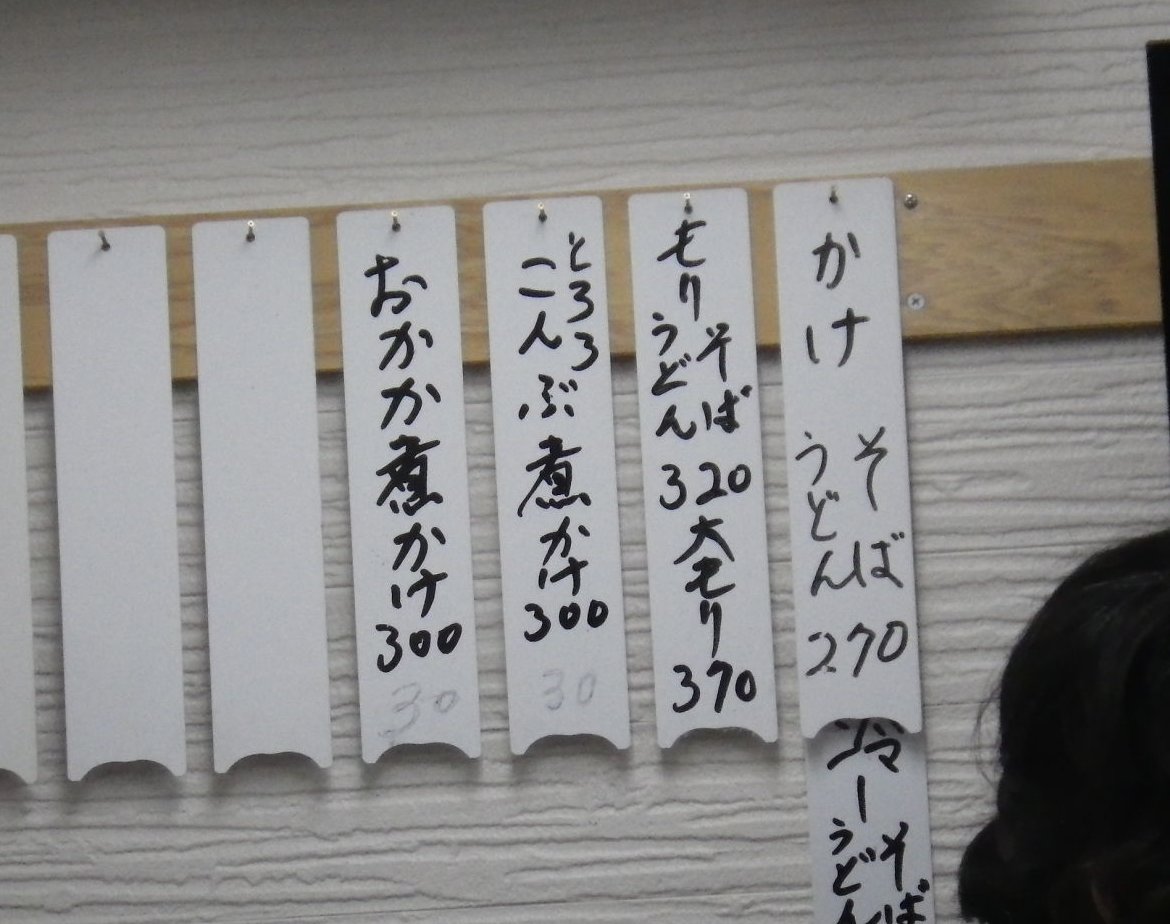 かけ
そば
うどん
270
冷ー
そば
うどん
もり
そば
うどん
320
大もり
370
とろろ
こんぶ煮かけ
300
30
おかか煮かけ
300
30